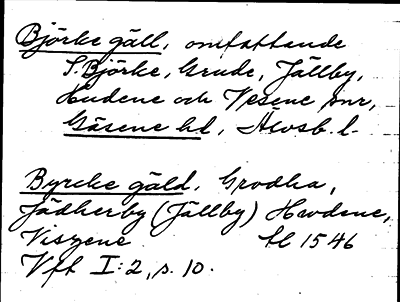 Björke gäll, omfattande
S. Björke, Grude, Jällby,
Hudene och Vesene snr,
Gäsene hd, Älvsb. l.
Byrcke gäld, Grodha,
Jädherby (Jällby) Hwdene,
Viszene Hl 1546
Vft I:2, s. 10.